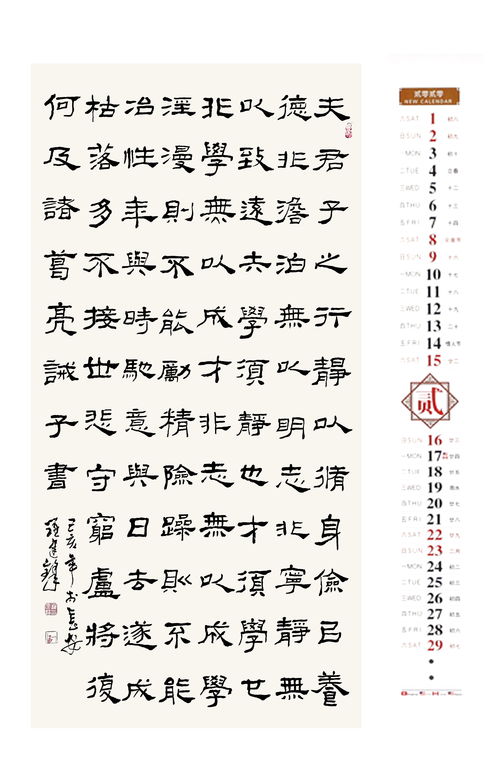 夫君子之行靜以脩身儉以養
德非澹泊無以明志非寧靜無
以致遠夫學須靜也才須學也
非學無以成才非志無以成學
淫漫則不能勵精險躁則不能
冶性年與時馳意與日去遂成
枯落多不接世悲守窮廬將復
何及諸葛亮誡子書
己亥年於長安
贰零贰零
NEW CALENDAR
六SAT 1 初八
日SUN 2 初九
一MON 3 初十
二TUE 4 立春
三WED 5 十二
四THU 6 十三
五FRI 7 十四
六SAT 8 元宵节
日SUN 9 十六
一MON 10 十七
二TUE 11 十八
三WED 12 十九
四THU 13 二十
五FRI 14 情人节
六SAT 15 廿二
贰
日SUN 16 廿三
一MON 17 廿四
二TUE 18 廿五
三WED 19 雨水
四THU 20 廿七
五FRI 21 廿八
六SAT 22 廿九
日SUN 23 二月
一MON 24 初二
二TUE 25 初三
三WED 26 初四
四THU 27 初五
五FRI 28 初六
六SAT 29 初七